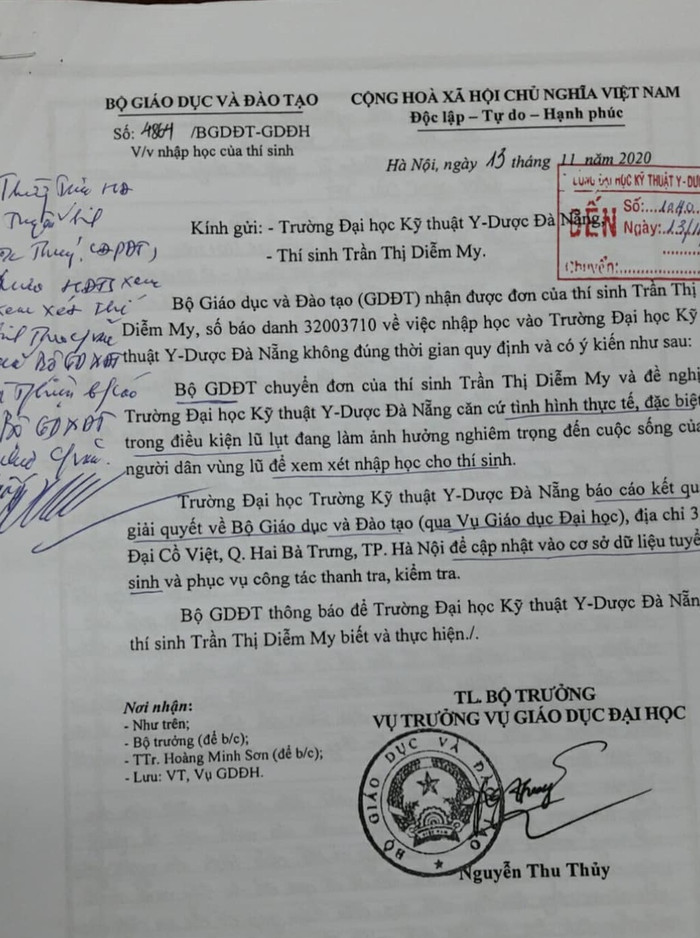 BỘ GIÁO DỤC VÀ ĐÀO TẠO
Số: 4864 /BGDĐT-GDĐH
V/v nhập học của thí sinh
CỘNG HOÀ XÃ HỘI CHỦ NGHĨA VIỆT NAM
Độc lập – Tự do – Hạnh phúc
Hà Nội, ngày 13 tháng 11 năm 2020
HỌC KỸ THUẬT Y-DƯỢ
ĐẾN
Số:
Ngày: 13/1
Chuyển:
Kính gửi: - Trường Đại học Kỹ thuật Y-Dược Đà Nẵng;
- Thí sinh Trần Thị Diễm My.
Bộ Giáo dục và Đào tạo (GDĐT) nhận được đơn của thí sinh Trần Thị
Diễm My, số báo danh 32003710 về việc nhập học vào Trường Đại học Kỹ
thuật Y-Dược Đà Nẵng không đúng thời gian quy định và có ý kiến như sau:
Bộ GDĐT chuyển đơn của thí sinh Trần Thị Diễm My và đề nghị
Trường Đại học Kỹ thuật Y-Dược Đà Nẵng căn cứ tình hình thực tế, đặc biệt
trong điều kiện lũ lụt đang làm ảnh hưởng nghiêm trọng đến cuộc sống của
người dân vùng lũ để xem xét nhập học cho thí sinh.
Trường Đại học Trường Kỹ thuật Y-Dược Đà Nẵng báo cáo kết qu
giải quyết về Bộ Giáo dục và Đào tạo (qua Vụ Giáo dục Đại học), địa chỉ 3
Đại Cồ Việt, Q. Hai Bà Trưng, TP. Hà Nội để cập nhật vào cơ sở dữ liệu tuyể
sinh và phục vụ công tác thanh tra, kiểm tra.
Bộ GDĐT thông báo để Trường Đại học Kỹ thuật Y-Dược Đà Nẵn
thí sinh Trần Thị Diễm My biết và thực hiện./.
Nơi nhận:
- Như trên;
- Bộ trưởng (để b/c);
- TTr. Hoàng Minh Sơn (để b/c);
- Lưu: VT, Vụ GDĐH.
TL. BỘ TRƯỞNG
VỤ TRƯỞNG VỤ GIÁO DỤC ĐẠI HỌC
BỘ GIÁO DỤC VÀ ĐÀO TẠO
Nguyễn Thu Thủy